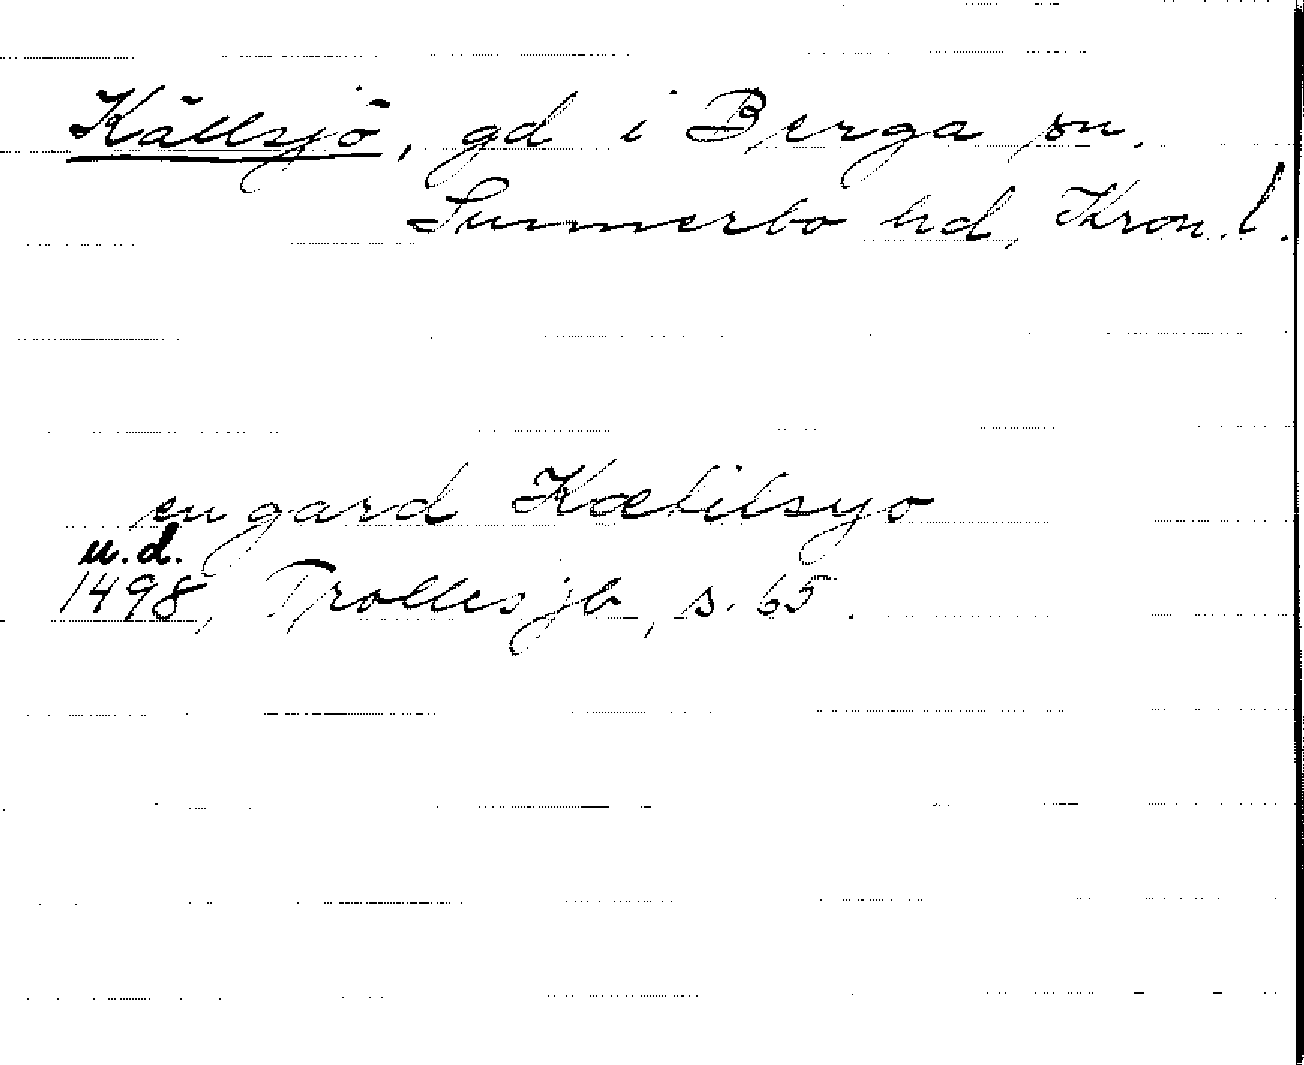 Källsjö, gd i Berga sn.
Sunnerbo hd, Kron. l.
en gard Kætilsyo
u.d.
1498, Trolles jb, s. 65.